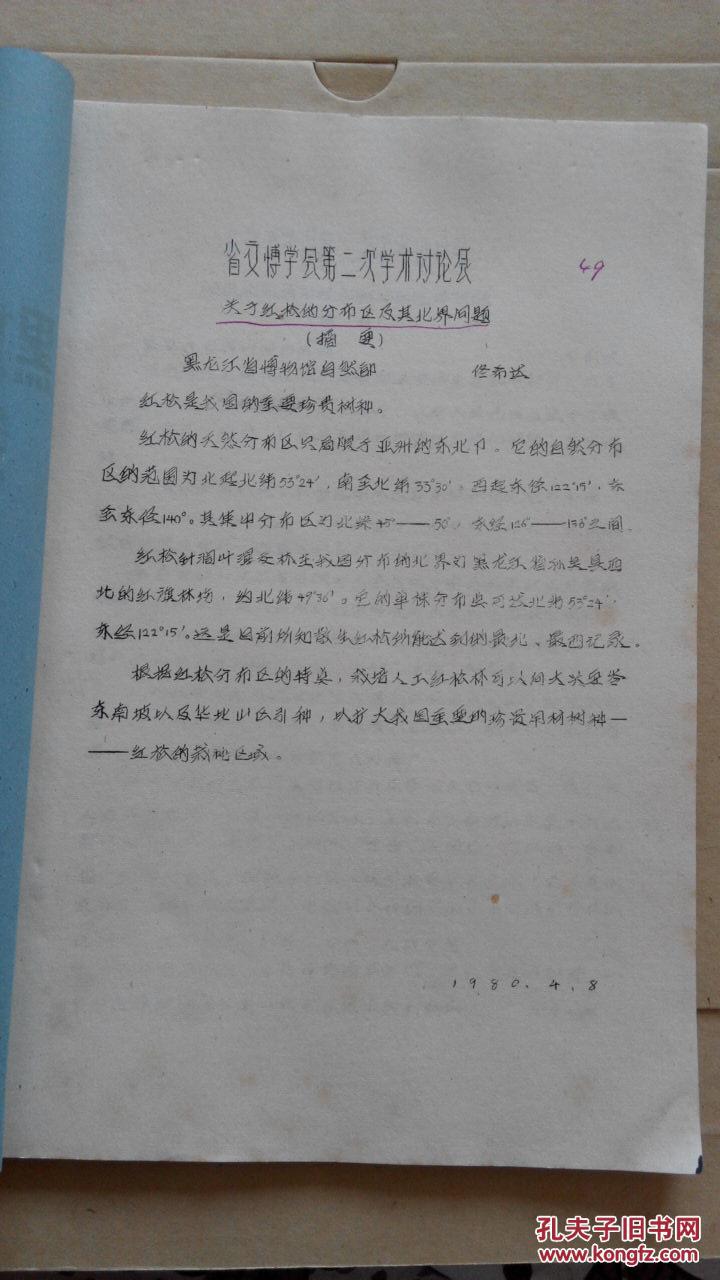 省文博学会第二次学术讨论会
49
关于红松的分布区及其北界问题
(摘 要)
黑龙江省博物馆自然部 佟希达
红松是我国的重要珍贵树种。
红松的天然分布区只局限于亚洲的东北部。它的自然分布
区的范围为北起北纬53°24′,南至北纬33°30′,西起东经122°15′,东
至东经140°。其集中分布区为北纬45°——50°,东经126°——136°之间。
红松针阔叶混交林在我国分布的北界为黑龙江省孙吴县西
北的红旗林场,约北纬49°36′。它的单株分布点可达北纬53°24′,
东经122°15′。这是目前所知散生红松所能达到的最北、最西记录。
根据红松分布区的特点,栽培人工红松林可以向大兴安岭
东南坡以及华北山区引种,以扩大我国重要的珍贵用材树种—
——红松的栽种区域。
1980.4.8
孔夫子旧书网
www.kongfz.com